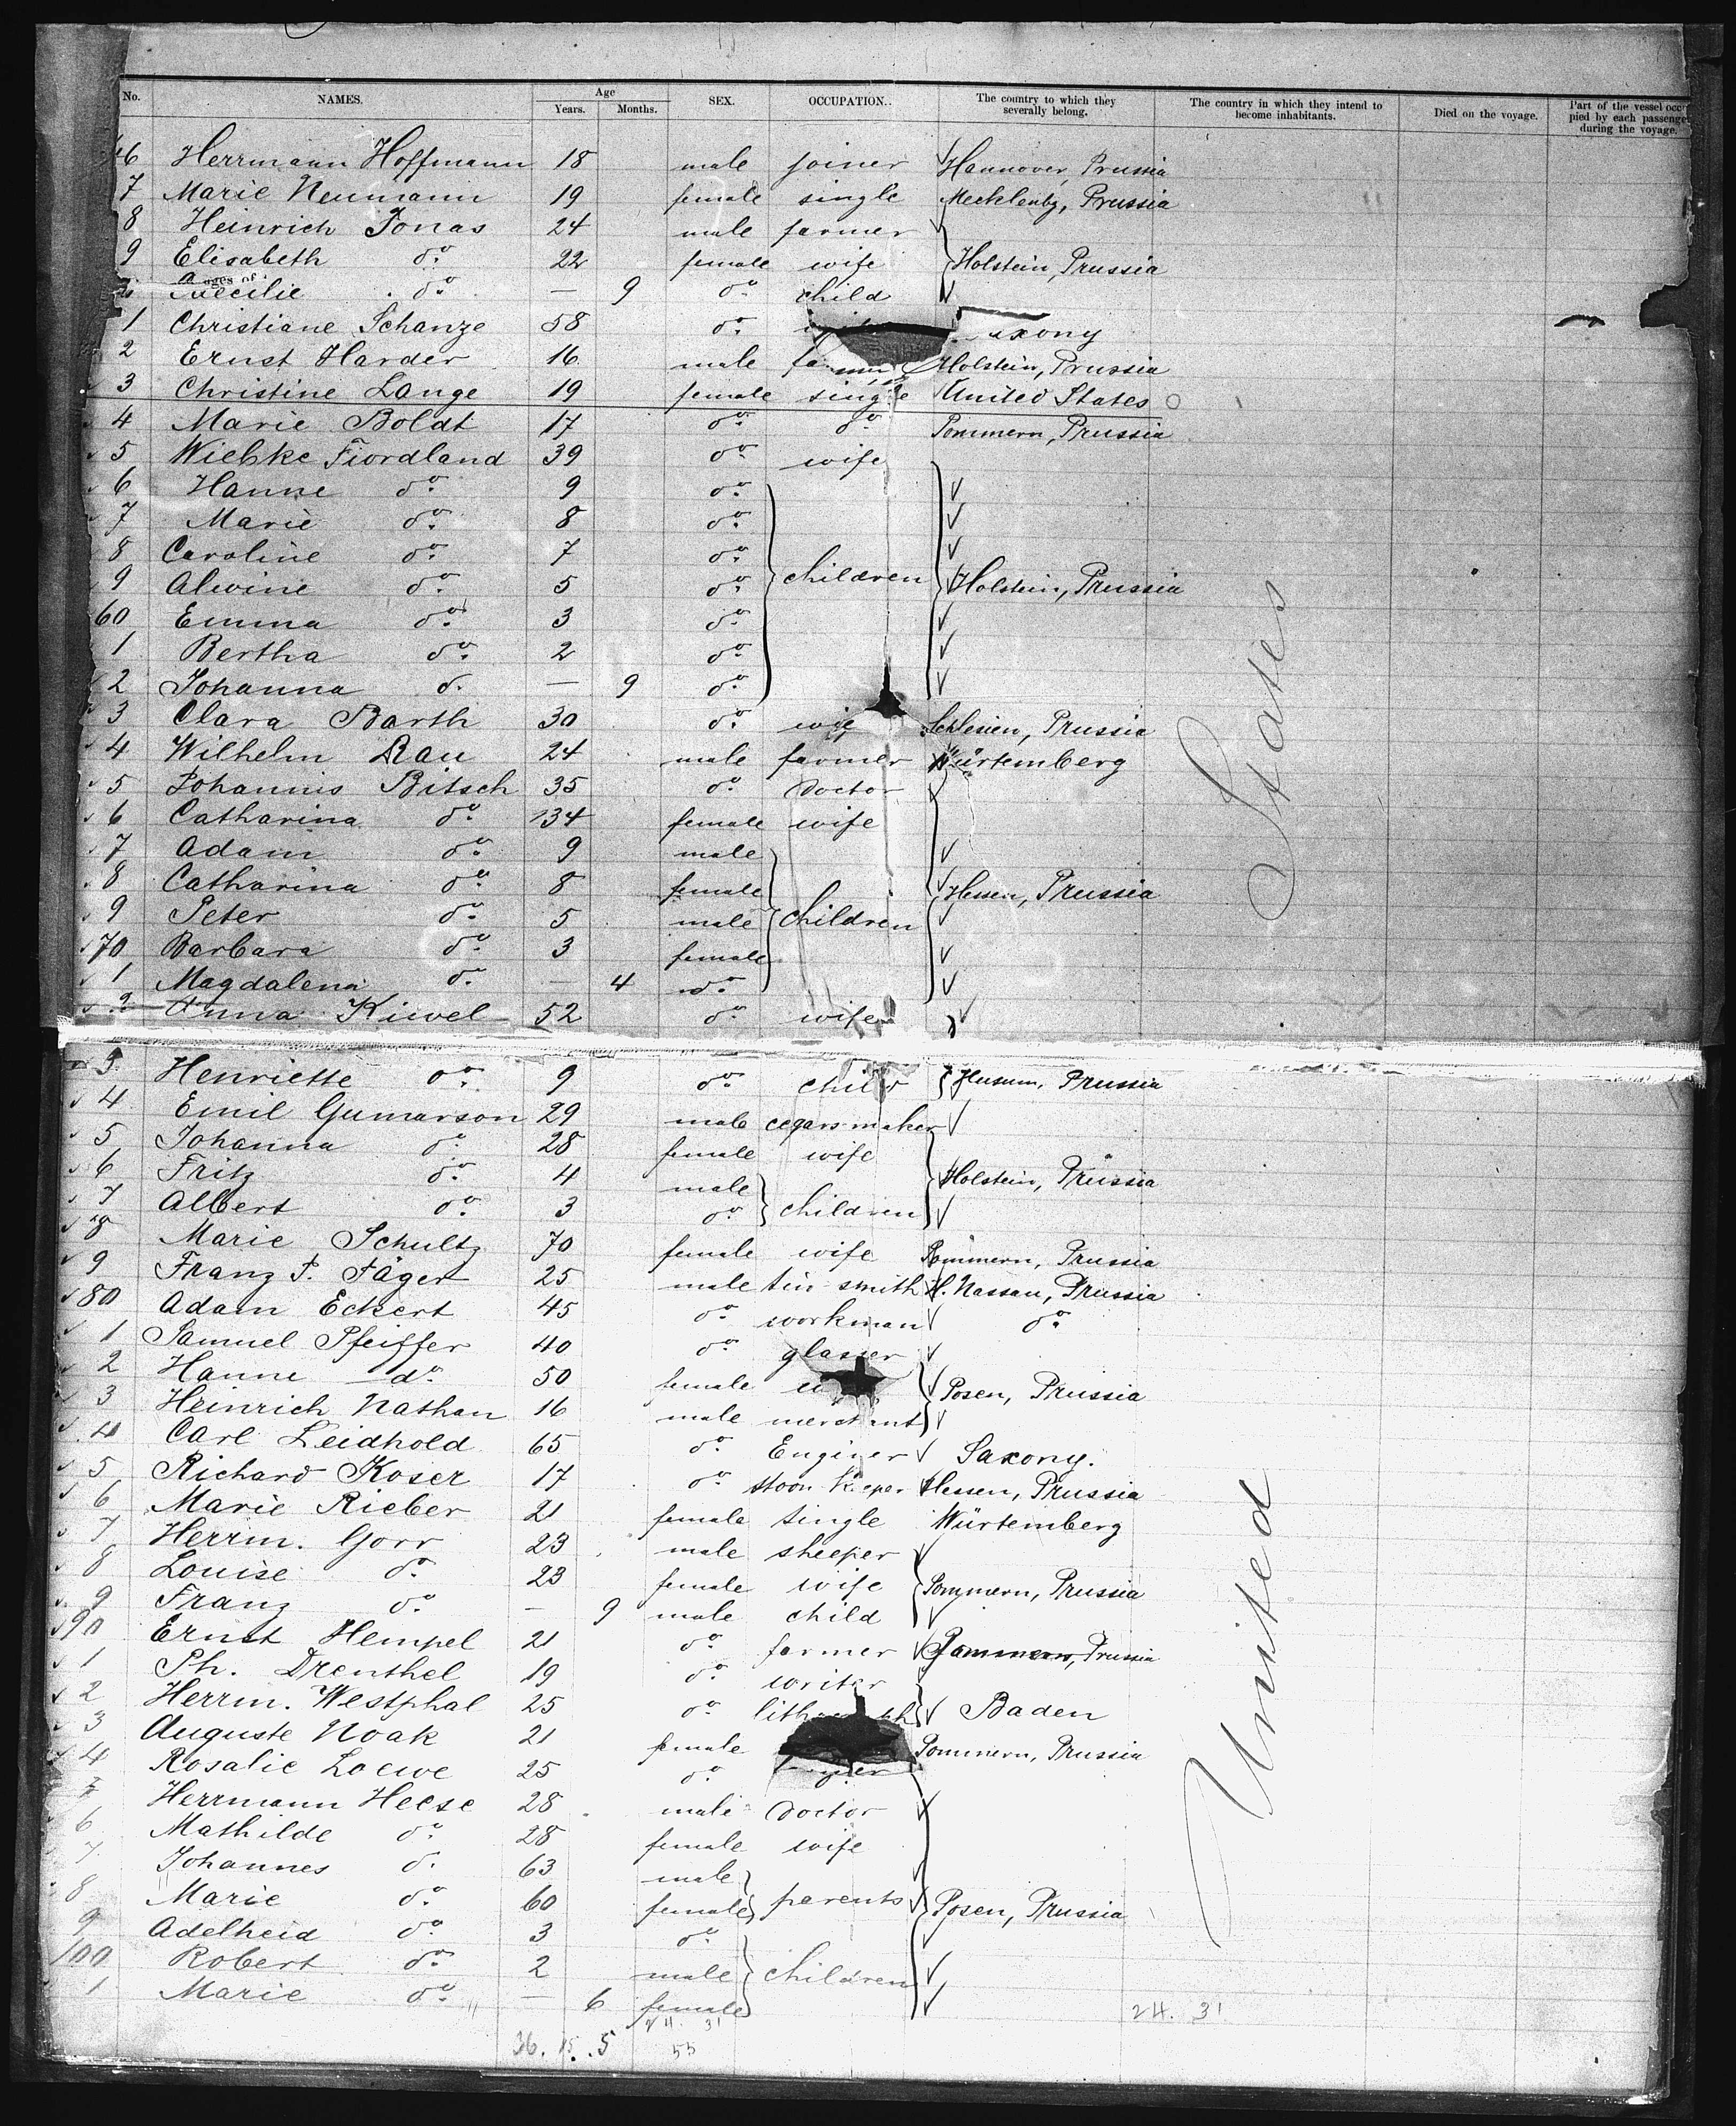 No. NAMES. Age Years. Months. SEX. OCCUPATION. The country to which they severally belong. The country in which they intend to become inhabitants. Died on the voyage. Part of the vessel occupied by each passenger during the voyage.
46 Herrmann Hoffmann 18 male joiner Hannover, Prussia
7 Marie Neumann 19 female single Mecklenbg, Prussia
8 Heinrich Jonas 24 male farmer
9 Elisabeth do. 22 female wife Holstein, Prussia
ages of
Caecilie do. — 9 do. child
1 Christiane Schanze 58 do. Saxony
2 Ernst Harder 16 male farmer Holstein, Prussia
3 Christine Lange 19 female single United States
4 Marie Boldt 17 do. do. Pommern, Prussia
5 Wiebke Fiordland 39 do. wife
6 Hanne do. 9 do.
7 Marie do. 8 do.
8 Caroline do. 7 do.
9 Alwine do. 5 do. children Holstein, Prussia
60 Emma do. 3 do.
1 Bertha do. 2 do.
2 Johanna d. — 9 do.
3 Clara Barth 30 do. wife Schlesien, Prussia
4 Wilhelm Rau 24 male farmer Würtemberg
5 Johannis Bitsch 35 do. doctor
6 Catharina do. 34 female wife
7 Adam do. 9 male
8 Catharina do. 8 female Hessen, Prussia
9 Peter do. 5 male children
70 Barbara do. 3 female
1 Magdalena d. — 4 do.
2 Anna Kiwel 52 do. wife
3. Henriette do. 9 do. child Husum, Prussia
4 Emil Gumarson 29 male cegars maker
5 Johanna do. 28 female wife
6 Fritz do. 4 male Holstein, Prussia
7 Albert do. 3 do. children
8 Marie Schultz 70 female wife Pommern, Prussia
9 Franz P. Jäger 25 male tin smith H. Nassau, Prussia
80 Adam Eckert 45 do. workman do.
1 Samuel Pfeiffer 40 do. glasser
2 Hanne do. 50 female Posen, Prussia
3 Heinrich Nathan 16 male merchant
4 Carl Leidhold 65 do. Enginer Saxony.
5 Richard Koser 17 do. stoor keeper Hessen, Prussia
6 Marie Rieber 21 female single Würtemberg
7 Herrm. Gorr 23 male sheeper
8 Louise do. 23 female wife Pommern, Prussia
9 Franz do. — 9 male child
90 Ernst Hempel 21 do. farmer Pommern, Prussia
1 Ph. Drenthel 19 do. writer
2 Herrm. Westphal 25 do. Baden
3 Auguste Noak 21 female Pommern, Prussia
4 Rosalie Loewe 25 do.
5 Herrmann Heese 28 male doctor
6 Mathilde do. 28 female wife
7 Johannes d. 63 male
8 Marie do. 60 female parents Posen, Prussia
9 Adelheid do. 3 do.
100 Robert do. 2 male children
1 Marie do. — 6 female
24. 31 24. 31
36. 15. 5 55
United States